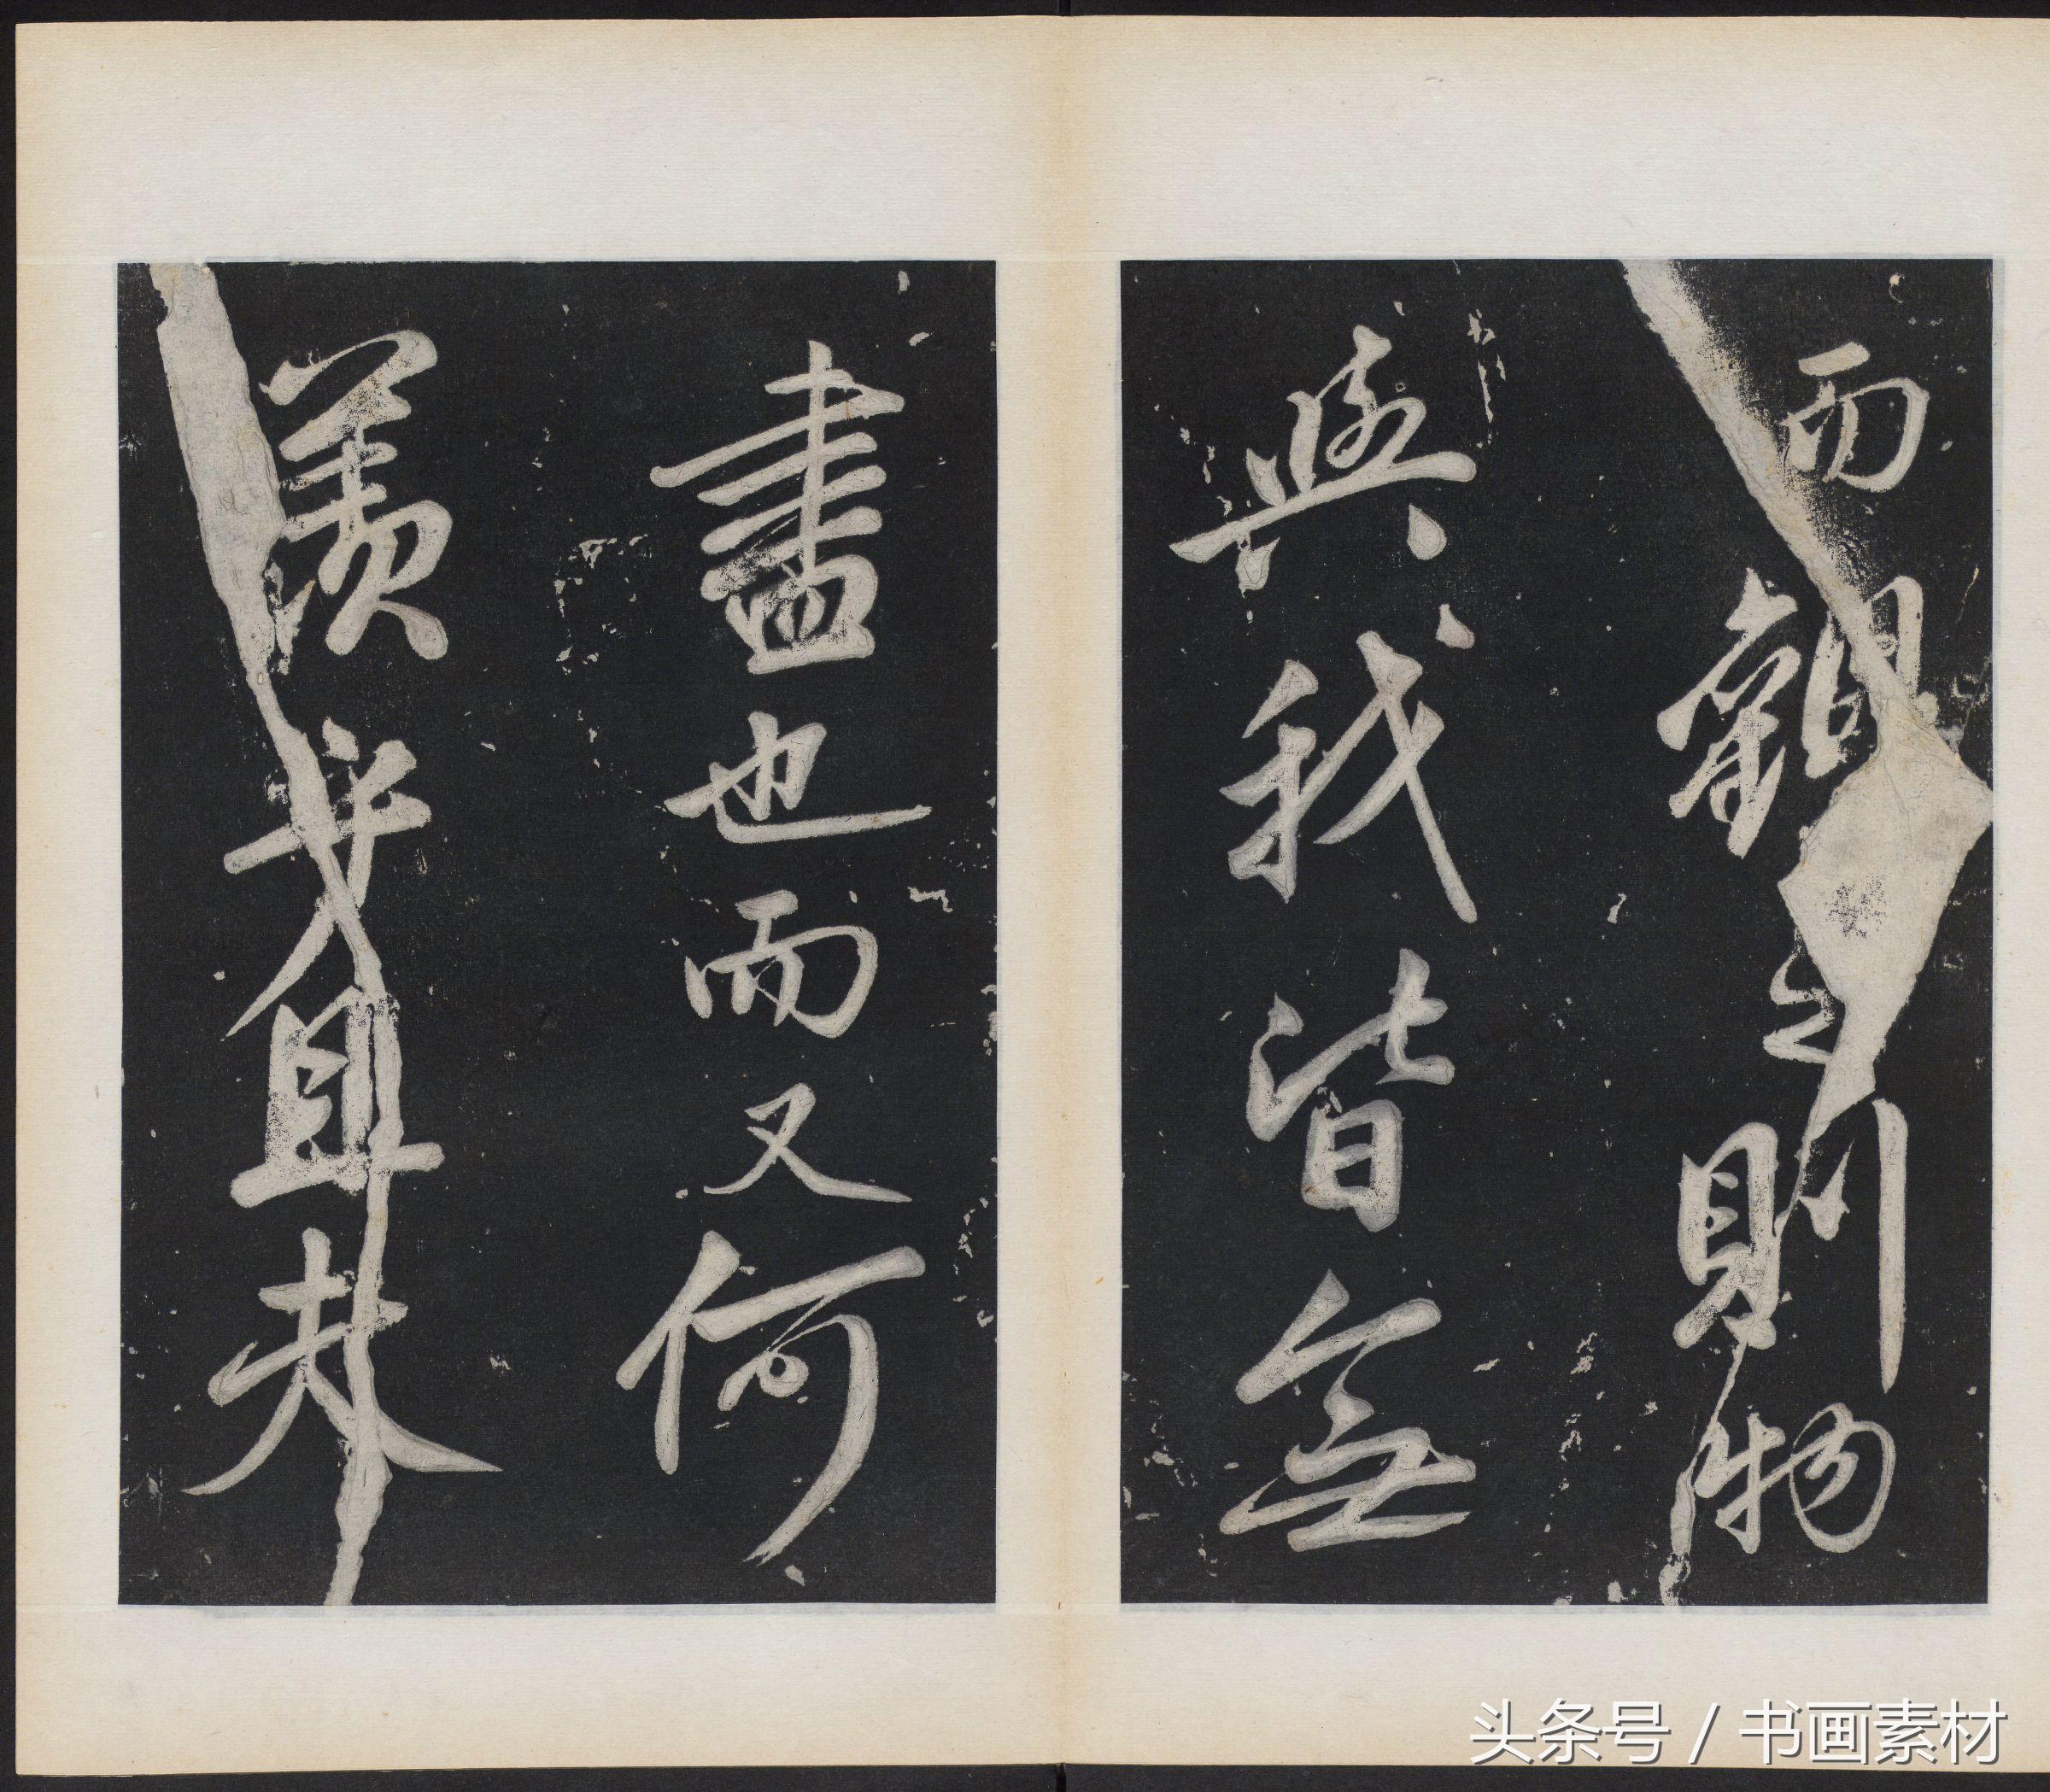 而觀之則物
與我皆無
盡也而又何
羨乎且夫
头条号 / 书画素材